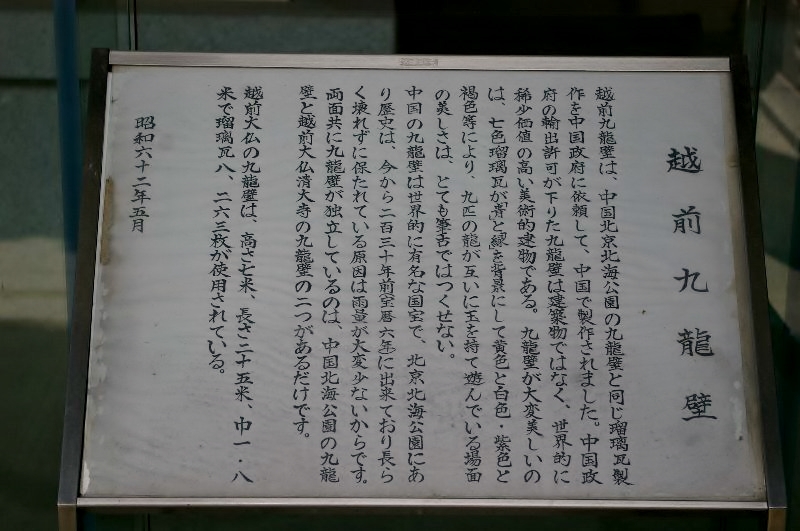 越前九龍壁
越前九龍壁は、中国北京北海公園の九龍壁と同じ瑠璃瓦製
作を中国政府に依頼して、中国で製作されました。中国政
府の輸出許可が下りた九龍壁は建築物ではなく、世界的に
稀少価値の高い美術的建物である。九龍壁が大変美しいの
は、七色瑠璃瓦が青と緑を背景にして黄色と白色・紫色と
褐色等により、九匹の龍が互いに玉を持て遊んでいる場面
の美しさは、とても筆舌ではつくせない。
中国の九龍壁は世界的に有名な国宝で、北京北海公園にあ
り歴史は、今から二百三十年前(宝暦六年)に出来ており長ら
く壊れずに保たれている原因は雨量が大変少ないからです。
両面共に九龍壁が独立しているのは、中国北海公園の九龍
壁と越前大仏清大寺の九龍壁の二つがあるだけです。
越前大仏の九龍壁は、高さ七米、長さ二十五米、巾一・八
米で瑠璃瓦八、二六三枚が使用されている。
昭和六十二年五月